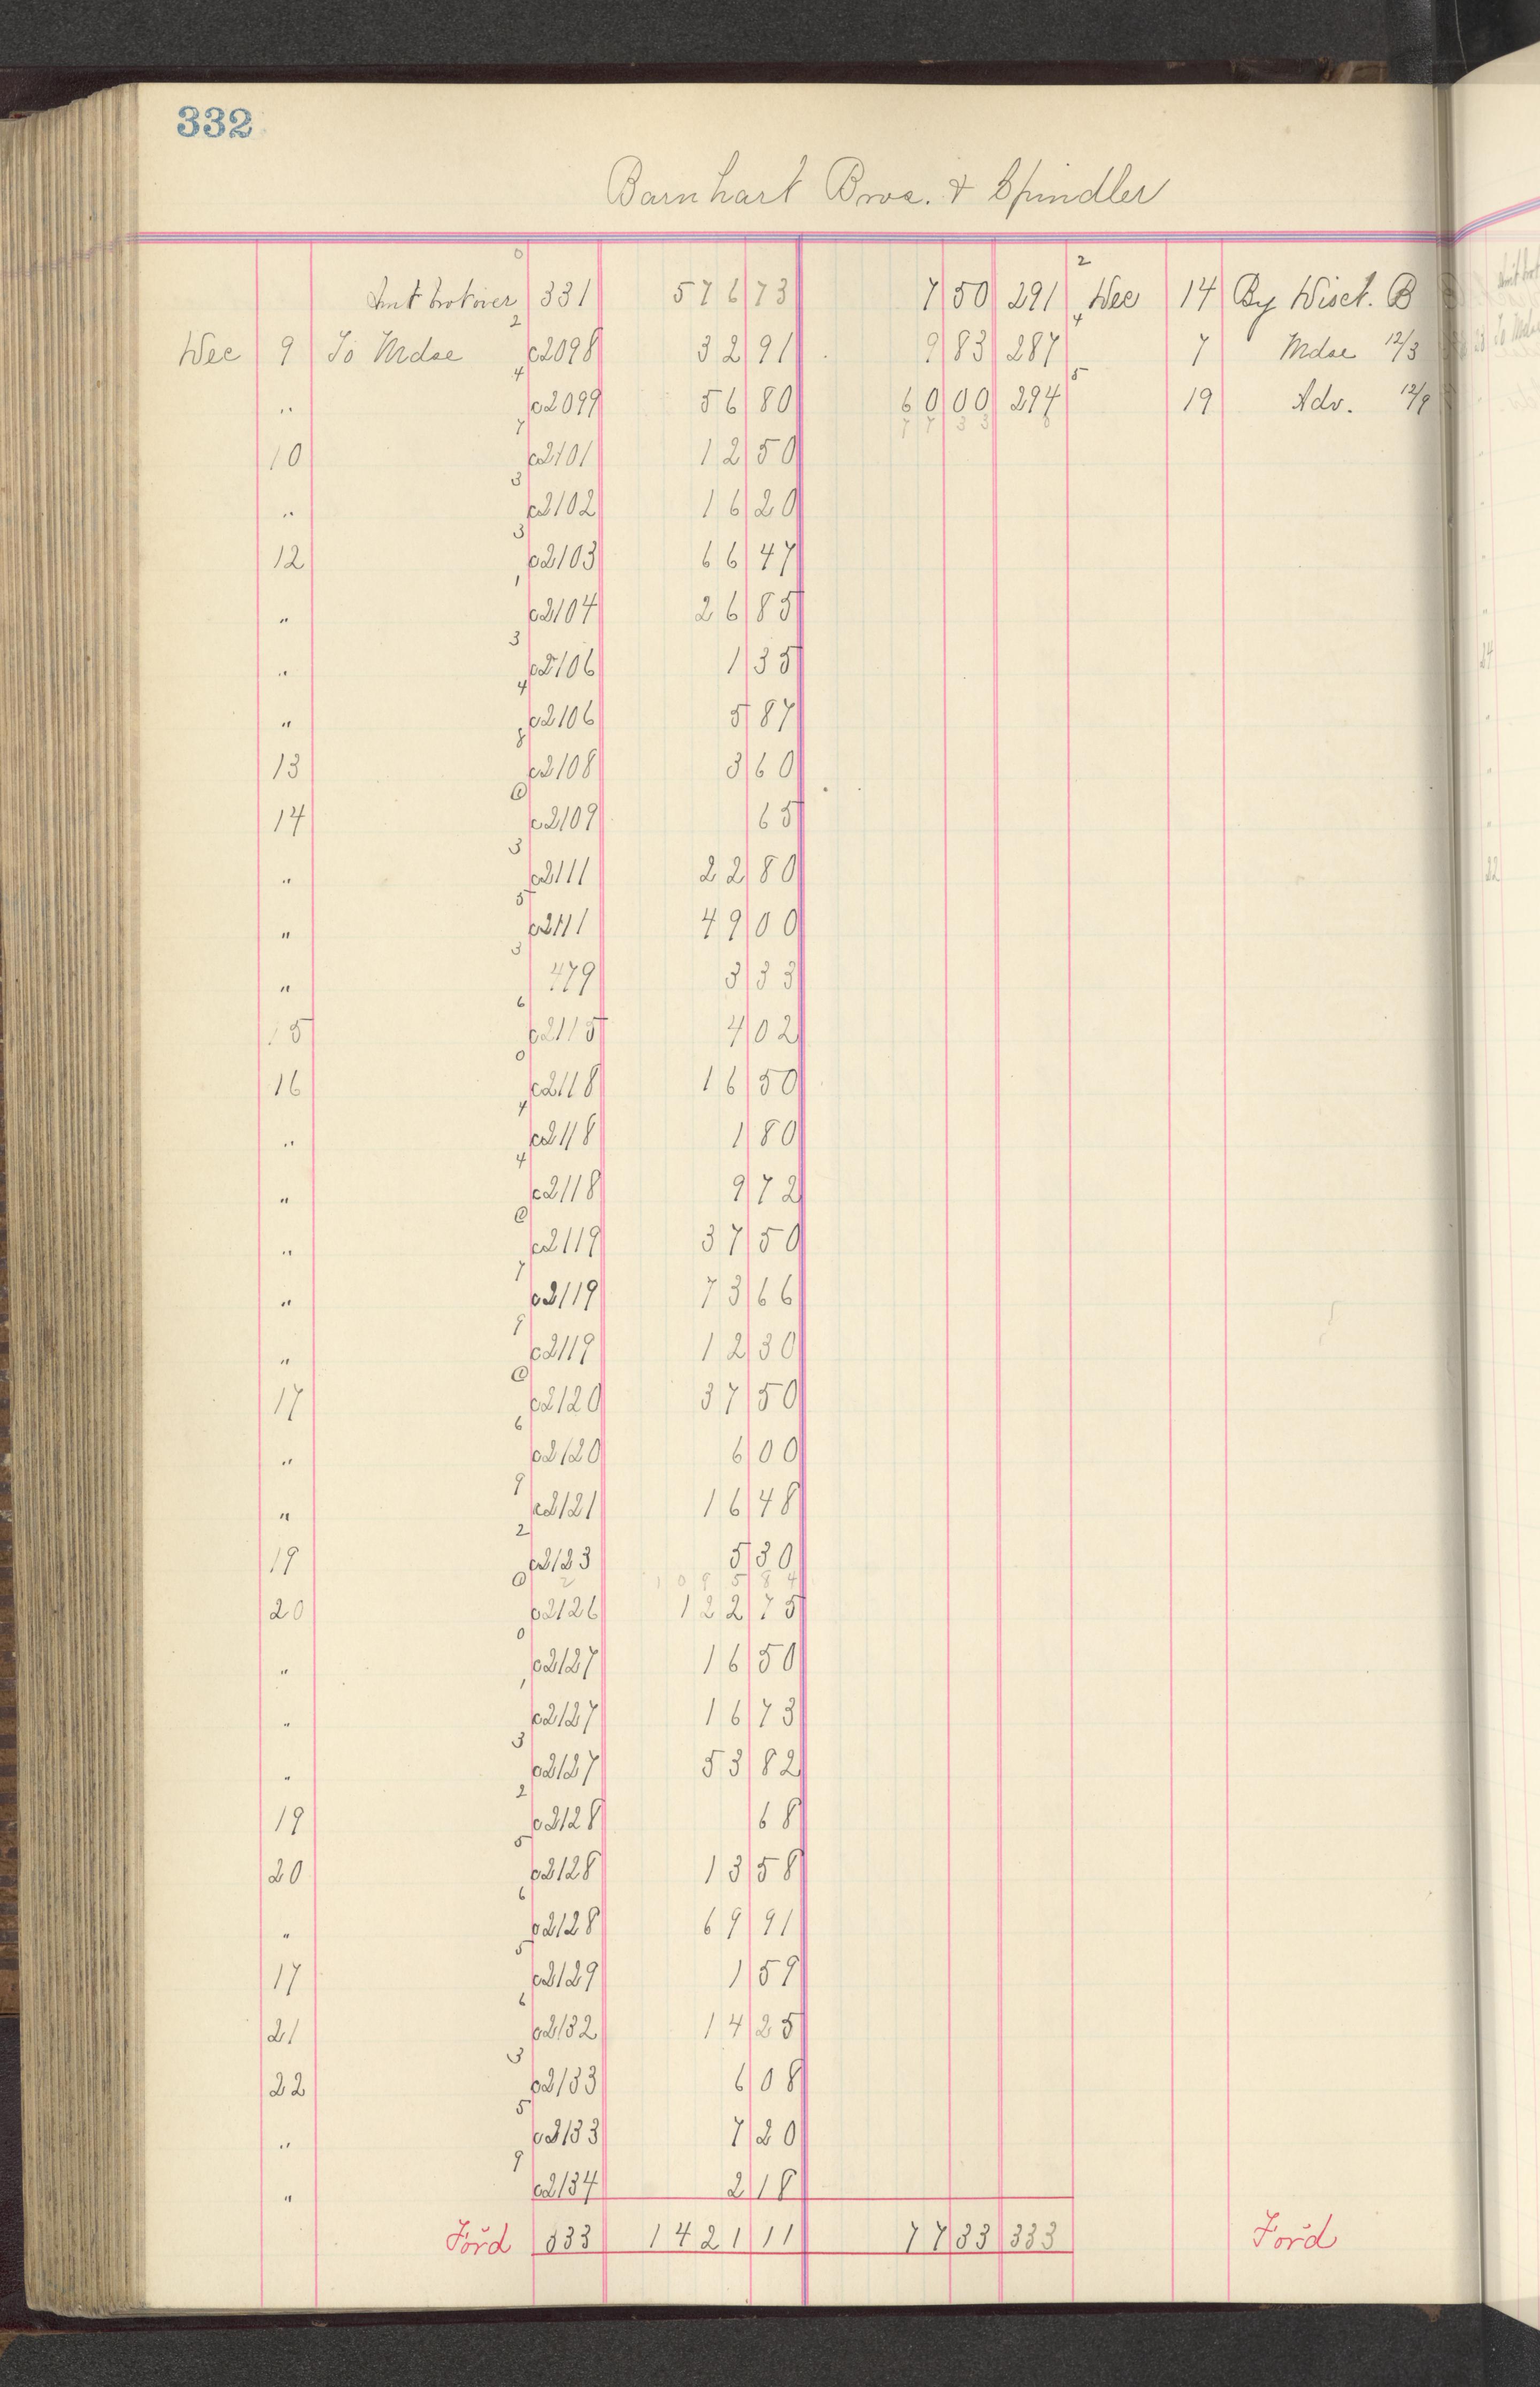 332
Barnhart Bros. & Spindler
0 2
Amt brot over 331 576 73 7 50 291 Dec 14 By Disct. B
2 4
Dec 9 To Mdse c2098 32 91 9 83 287 7 Mdse 12/3
4 5
" c2099 56 80 60 00 294 19 Adv. 12/9
7 77 33
10 c2101 12 50
3
" c2102 16 20
3
12 c2103 66 47
1
" c2104 26 85
3
" c2106 1 35
4
" c2106 5 87
8
13 c2108 3 60
0
14 c2109 65
3
" c2111 22 80
5
" c2111 49 00
3
" 479 3 33
6
15 c2115 4 02
0
16 c2118 16 50
4
" c2118 1 80
4
" c2118 9 72
0
" c2119 37 50
7
" c2119 73 66
9
" c2119 12 30
0
17 c2120 37 50
6
" c2120 6 00
9
" c2121 16 48
2
19 c2123 5 30
0 2 1095 84
20 c2126 122 75
0
" c2127 16 50
1
" c2127 16 73
3
" c2127 53 82
2
19 c2128 68
5
20 c2128 13 58
6
" c2128 69 91
5
17 c2129 1 59
6
21 c2132 14 25
3
22 c2133 6 08
5
" c2133 7 20
9
" c2134 2 18
Ford 333 1421 11 77 33 333 Ford